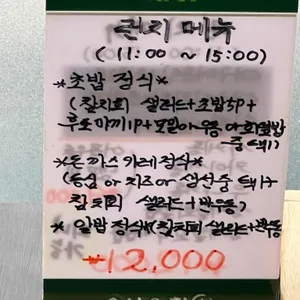 런치 메뉴
(11:00 ~ 15:00)
*초밥 정식*
(참치회 샐러드+초밥5P+
후토마끼1P+모밀or우동 or회덮밥
중 택1)
*돈까스 카레정식*
(등심 or 치즈 or 생선중 택1+
참치회 샐러드+반우동)
* 알밥 정식*(참치회 샐러드+반우동
12,000